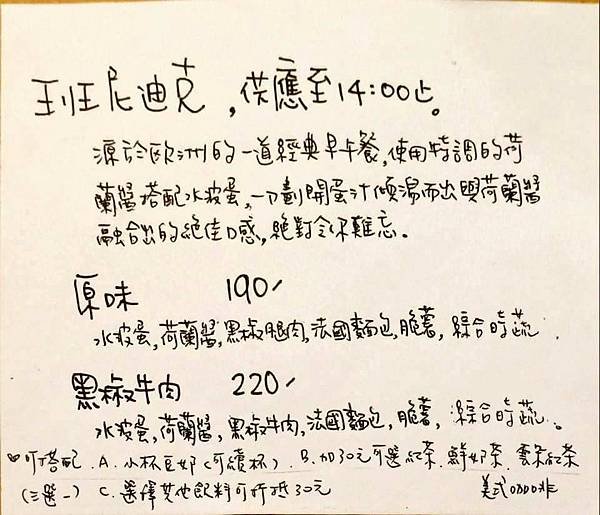 班尼迪克，供應至14:00止。
源於歐洲的一道經典早午餐，使用特調的荷
蘭醬搭配水波蛋，一刀劃開蛋汁傾瀉而出與荷蘭醬
融合出的絕佳口感，絕對令你難忘。
原味 190/
水波蛋，荷蘭醬，黑椒腿肉，法國麵包，脆薯，綜合時蔬．
黑椒牛肉 220/
水波蛋，荷蘭醬，黑椒牛肉，法國麵包，脆薯，綜合時蔬．
♡可搭配．A．小杯豆奶（可續杯） B．加30元可選紅茶．鮮奶茶．雲朵紅茶
（三選一） C．選擇其他飲料可折抵30元 美式咖啡